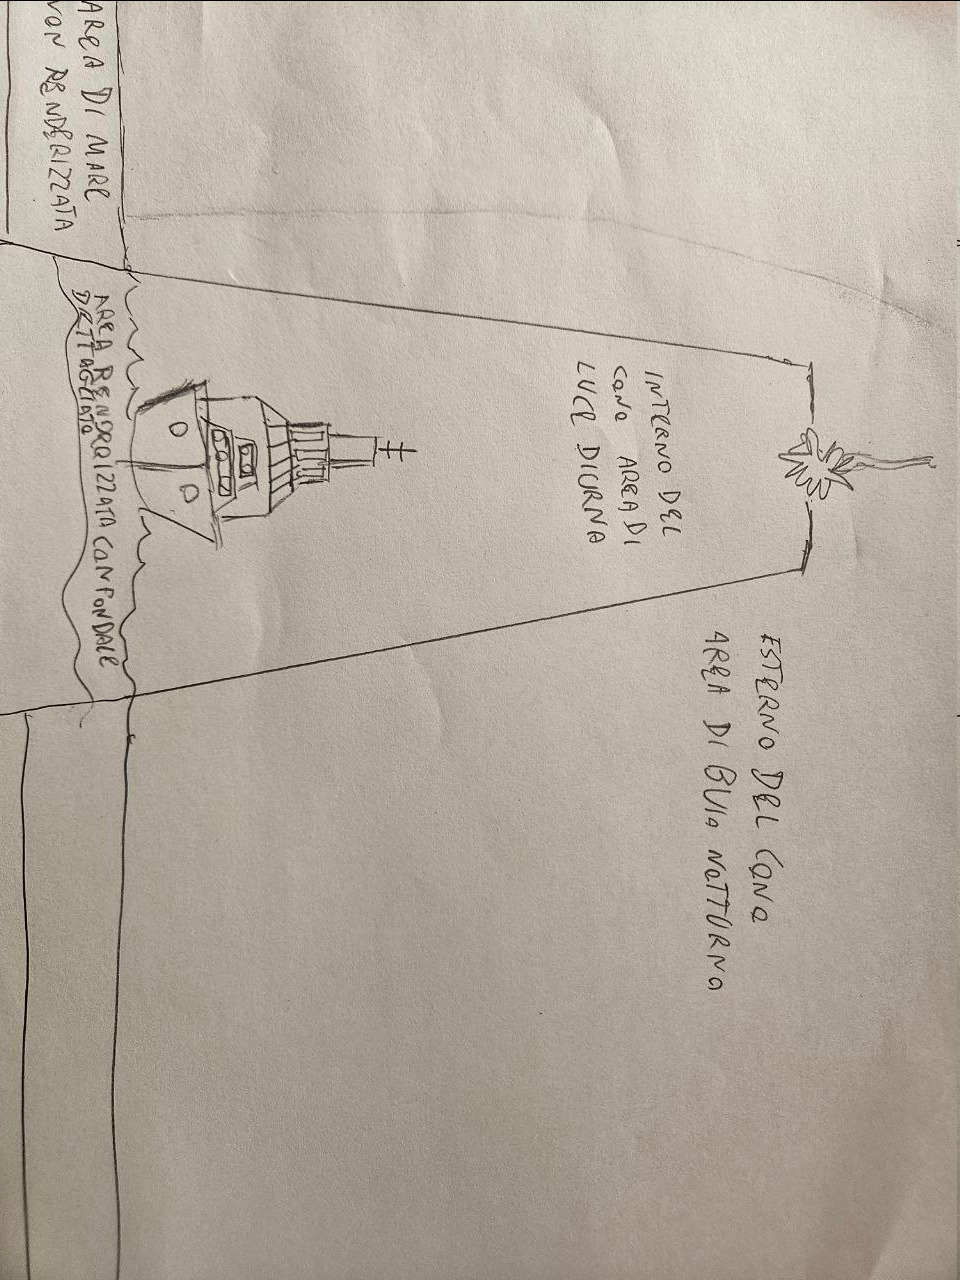 ESTERNO DEL CONO
AREA DI BUIO NOTTURNA
INTERNO DEL
CONO AREA DI
LUCE DIURNA
AREA DI MARE
NON RENDERIZZATA
AREA RENDERIZZATA CON FONDALE
DETTAGLIATO